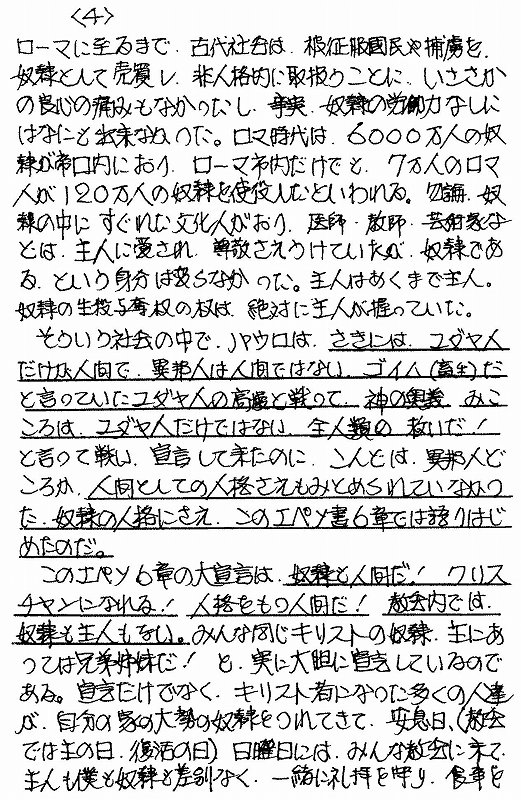 <4>
ローマに至るまで、古代社会は、被征服國民や捕虜を、
奴隷として売買し、非人格的に取扱うことに、いささか
の良心の痛みもなかったし、事実、奴隷の労働力なしに
はなにも出来なかった。ロマ時代は、6000万人の奴
隷が帝国内におり、ローマ市内だけでも、7万人のロマ
人が120万人の奴隷を使役したといわれる。勿論、奴
隷の中にすぐれた文化人がおり、医師・教師・芸術家な
どは、主人に愛され、尊敬さえうけていたが、奴隷であ
る、という身分は変らなかった。主人はあくまで主人。
奴隷の生殺与奪权の权は、絶対に主人が握っていた。
そういう社会の中で、パウロは、さきには、ユダヤ人
だけが人間で、異邦人は人間ではない、ゴイム(畜生)だ
と言っていたユダヤ人の高慢と戦って、神の奥義、みこ
ころは、ユダヤ人だけではない、全人類の救いだ!
と言って戦い、宣言して来たのに、こんどは、異邦人ど
ころか、人間としての人格さえもみとめられていなかっ
た、奴隷の人格にさえ、このエペソ書6章では語りはじ
めたのだ。
このエペソ6章の大宣言は、奴隷も人間だ! クリス
チャンになれる! 人格をもつ人間だ! 教会内では、
奴隷も主人もない。みんな同じキリストの奴隷、主にあ
っては兄弟姉妹だ! と、実に大胆に宣言しているので
ある。宣言だけでなく、キリスト者になった多くの人達
が、自分の家の大勢の奴隷をつれてきて、安息日、(教会
では主の日、復活の日)日曜日には、みんな教会に来て、
主人も僕も奴隷も差別なく、一緒に礼拝を守り、食事を